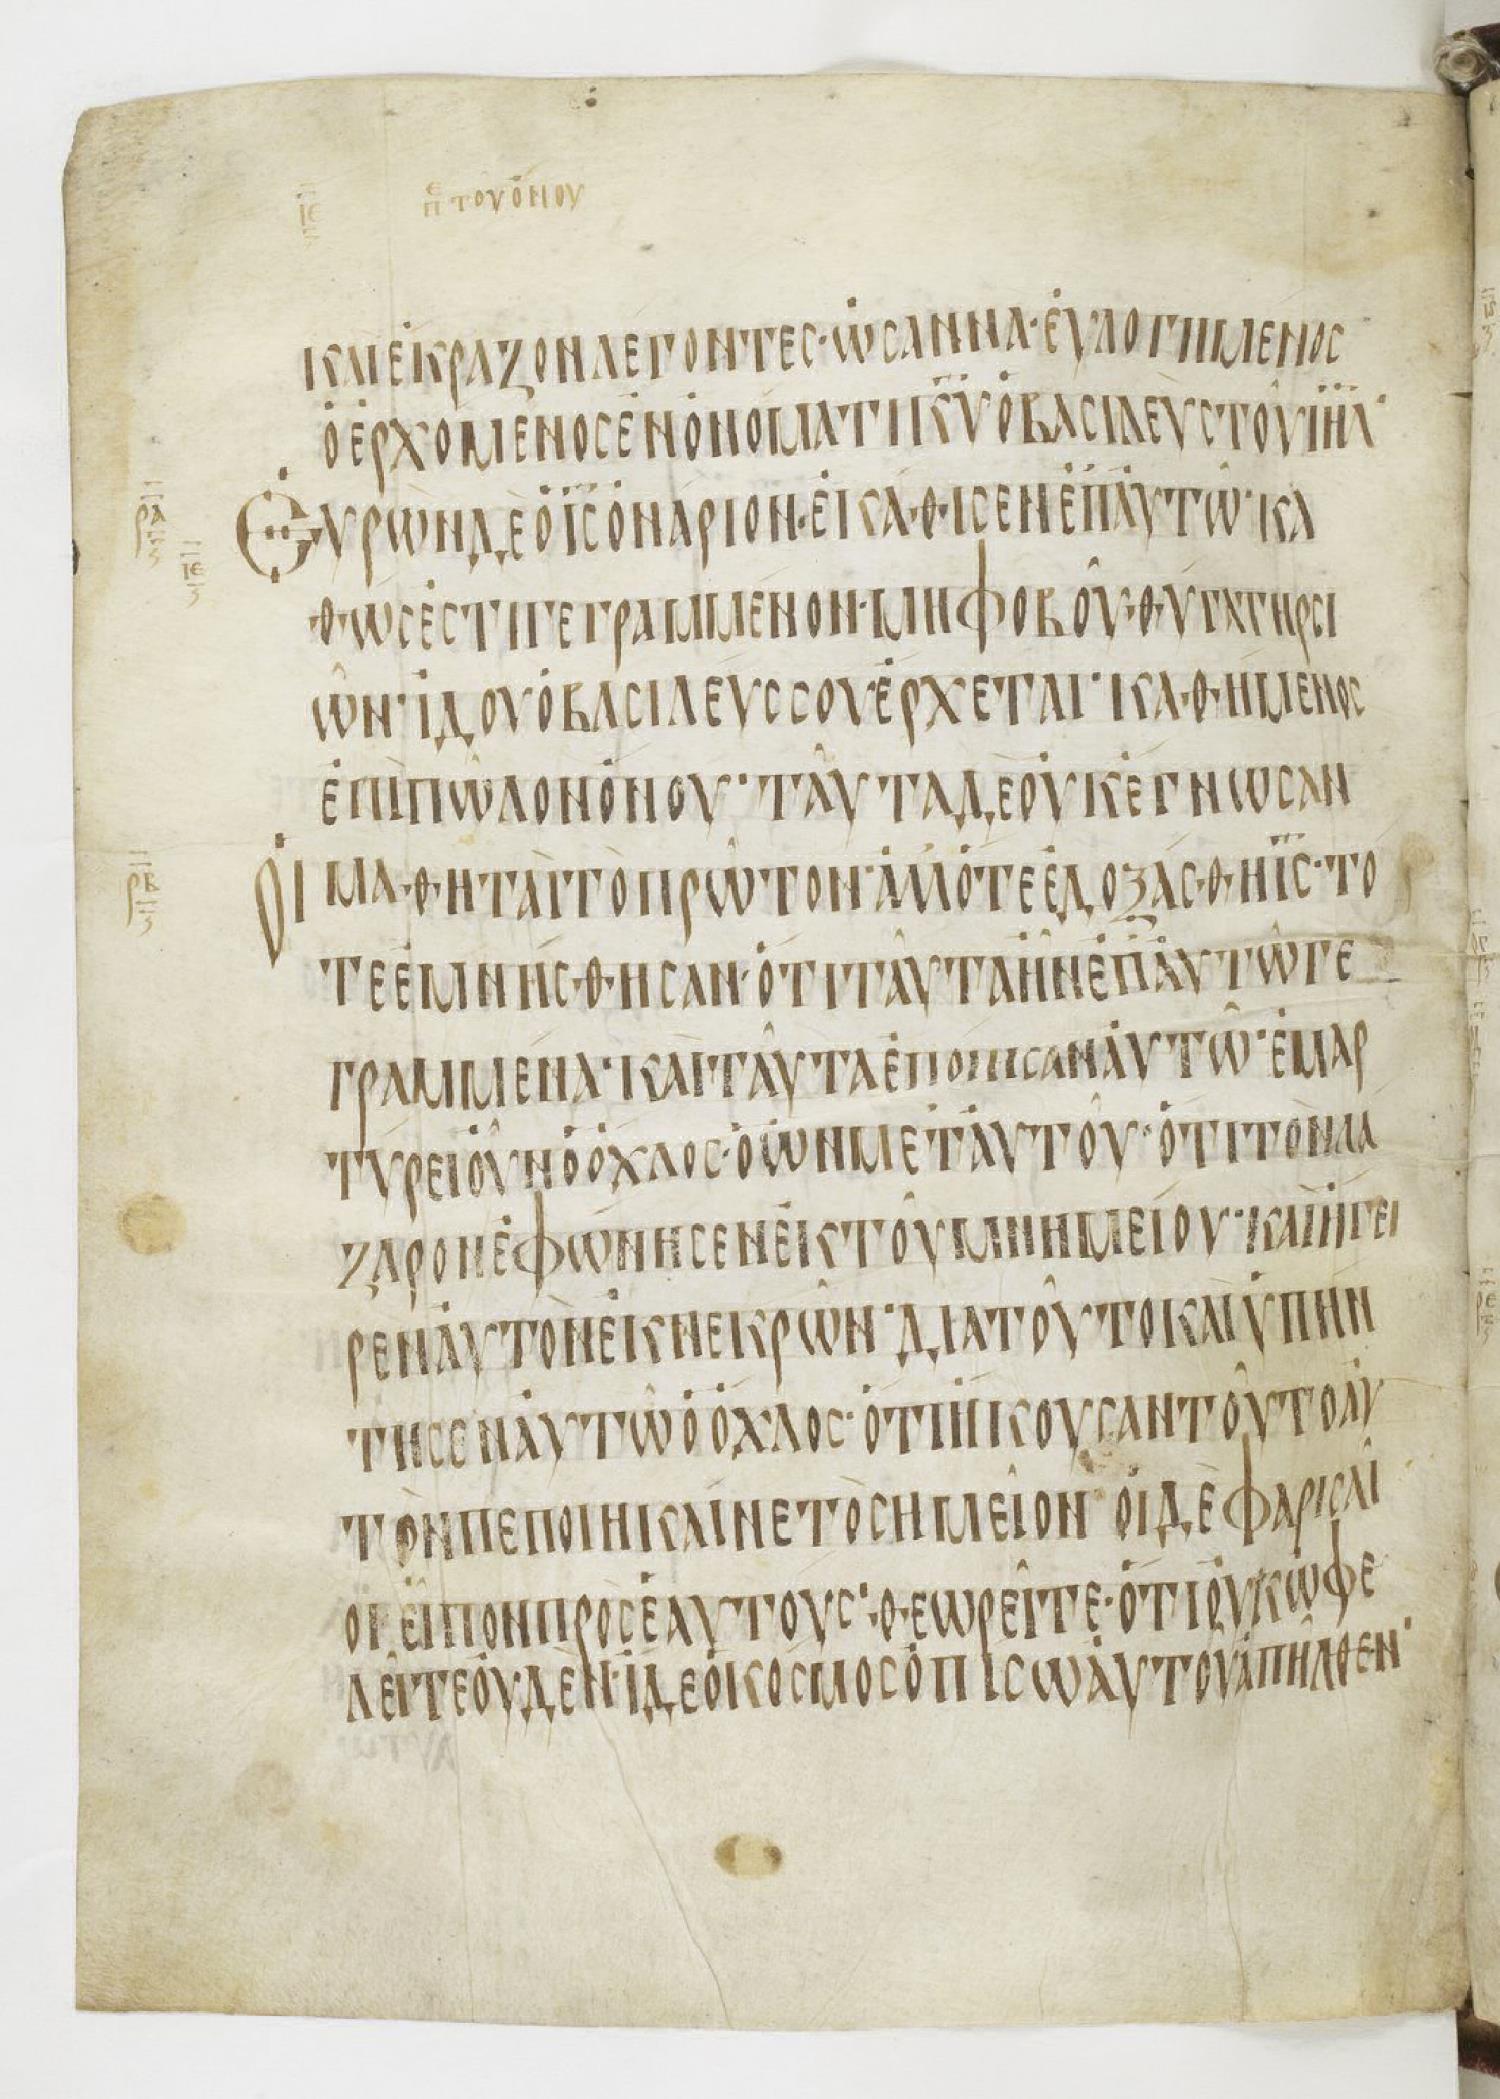 ΙΕ ΠΕ ΤΟΥ ΟΝΟΥ
ΚΑΙ ΕΚΡΑΖΟΝ ΛΕΓΟΝΤΕΣ· ΩΣΑΝΝΑ· ΕΥΛΟΓΗΜΕΝΟΣ
Ο ΕΡΧΟΜΕΝΟΣ ΕΝ ΟΝΟΜΑΤΙ Κ̅Υ̅ Ο ΒΑΣΙΛΕΥΣ ΤΟΥ Ι̅Η̅Λ̅·
ΡΑ ΙΕ ΕΥΡΩΝ ΔΕ Ο Ι̅Σ̅ ΟΝΑΡΙΟΝ· ΕΚΑΘΙΣΕΝ ΕΠ ΑΥΤΩ· ΚΑ
ΘΩΣ ΕΣΤΙ ΓΕΓΡΑΜΜΕΝΟΝ· ΜΗ ΦΟΒΟΥ ΘΥΓΑΤΗΡ ΣΙ
ΩΝ· ΙΔΟΥ Ο ΒΑΣΙΛΕΥΣ ΣΟΥ ΕΡΧΕΤΑΙ· ΚΑΘΗΜΕΝΟΣ
ΕΠΙ ΠΩΛΟΝ ΟΝΟΥ· ΤΑΥΤΑ ΔΕ ΟΥΚ ΕΓΝΩΣΑΝ
ΡΒ ΟΙ ΜΑΘΗΤΑΙ ΤΟ ΠΡΩΤΟΝ· ΑΛΛ ΟΤΕ ΕΔΟΞΑΣΘΗ Ι̅Σ̅· ΤΟ
ΤΕ ΕΜΝΗΣΘΗΣΑΝ· ΟΤΙ ΤΑΥΤΑ ΗΝ ΕΠ ΑΥΤΩ ΓΕ
ΓΡΑΜΜΕΝΑ· ΚΑΙ ΤΑΥΤΑ ΕΠΟΙΗΣΑΝ ΑΥΤΩ· ΕΜΑΡ
ΤΥΡΕΙ ΟΥΝ Ο ΟΧΛΟΣ· Ο ΩΝ ΜΕΤ ΑΥΤΟΥ· ΟΤΙ ΤΟΝ ΛΑ
ΖΑΡΟΝ ΕΦΩΝΗΣΕΝ ΕΚ ΤΟΥ ΜΝΗΜΕΙΟΥ· ΚΑΙ ΗΓΕΙ
ΡΕΝ ΑΥΤΟΝ ΕΚ ΝΕΚΡΩΝ· ΔΙΑ ΤΟΥΤΟ ΚΑΙ ΥΠΗΝ
ΤΗΣΕΝ ΑΥΤΩ Ο ΟΧΛΟΣ· ΟΤΙ ΗΚΟΥΣΑΝ ΤΟΥΤΟ ΑΥ
ΤΟΝ ΠΕΠΟΙΗΚΑΙΝΕ ΤΟ ΣΗΜΕΙΟΝ· ΟΙ ΔΕ ΦΑΡΙΣΑΙ
ΟΙ ΕΙΠΟΝ ΠΡΟΣ ΕΑΥΤΟΥΣ· ΘΕΩΡΕΙΤΕ· ΟΤΙ ΟΥΚ ΩΦΕ
ΛΕΙΤΕ ΟΥΔΕΝ· ΙΔΕ Ο ΚΟΣΜΟΣ ΟΠΙΣΩ ΑΥΤΟΥ ΑΠΗΛΘΕΝ·